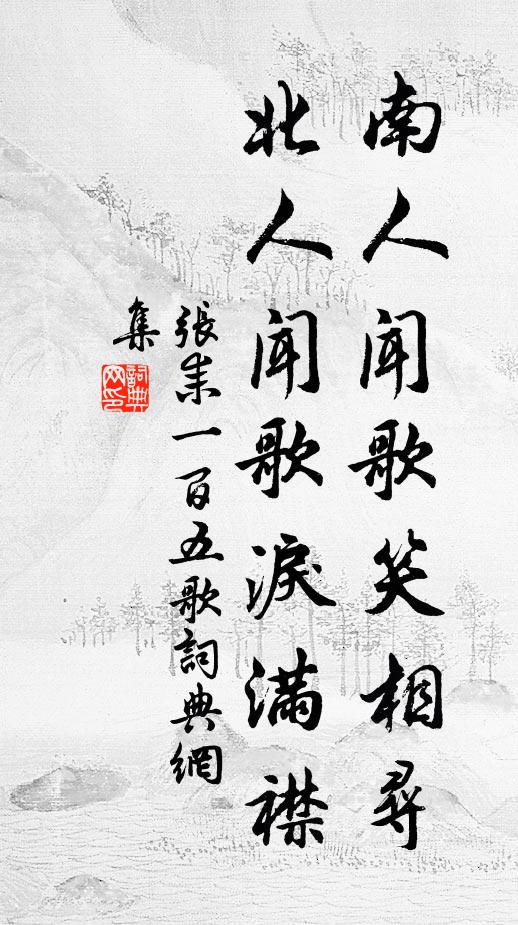 南人闻歌笑相尋
北人闻歌淚滿襟
張耒一百五歌詞典網
集
詞典
网印